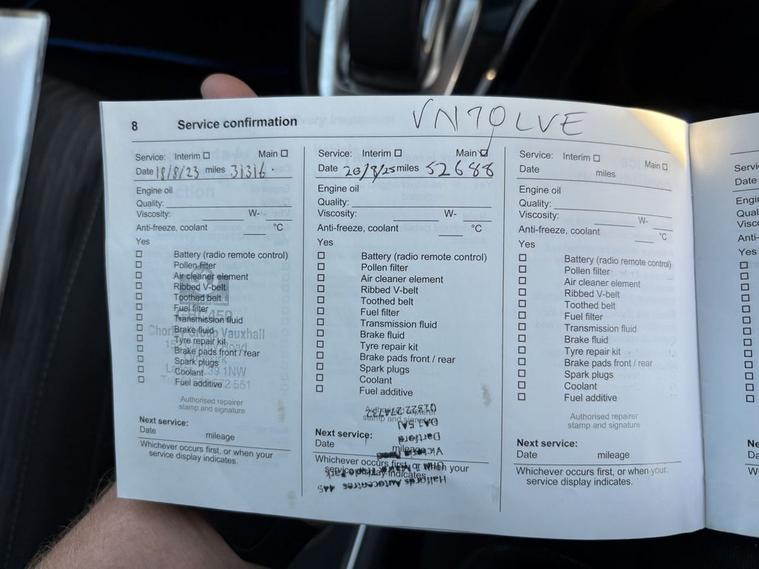 8 Service confirmation VN70LVE
Service: Interim Main
Date 18/8/23 miles 31316.
Engine oil
Quality:
Viscosity: W-
Anti-freeze, coolant °C
Yes
Battery (radio remote control)
Pollen filter
Air cleaner element
Ribbed V-belt
Toothed belt
Fuel filter
Transmission fluid
Brake fluid
Tyre repair kit
Brake pads front / rear
Spark plugs
Coolant
Fuel additive
Chorley Group Vauxhall
1NW
Authorised repairer
stamp and signature
Next service:
Date mileage
Whichever occurs first, or when your
service display indicates.
Service: Interim Main
Date 20/8/25 miles 52688
Engine oil
Quality:
Viscosity: W-
Anti-freeze, coolant °C
Yes
Battery (radio remote control)
Pollen filter
Air cleaner element
Ribbed V-belt
Toothed belt
Fuel filter
Transmission fluid
Brake fluid
Tyre repair kit
Brake pads front / rear
Spark plugs
Coolant
Fuel additive
stamp and signature
Next service:
Date mileage
Whichever occurs first, or when your
service display indicates.
Halfords Autocentres 445
Dartford
DA1 5AJ
Service: Interim Main
Date miles
Engine oil
Quality:
Viscosity: W-
Anti-freeze, coolant °C
Yes
Battery (radio remote control)
Pollen filter
Air cleaner element
Ribbed V-belt
Toothed belt
Fuel filter
Transmission fluid
Brake fluid
Tyre repair kit
Brake pads front / rear
Spark plugs
Coolant
Fuel additive
Authorised repairer
stamp and signature
Next service:
Date mileage
Whichever occurs first, or when your
service display indicates.
Date
Yes